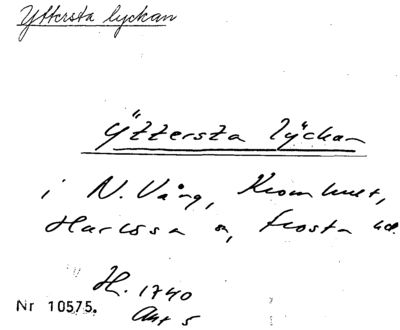 Yttersta lyckan
Yttersta lyckan
i N. Vång, Kronhuset,
Harlösa s, Frosta hd.
H. 1740
Akt 5
Nr 10575.